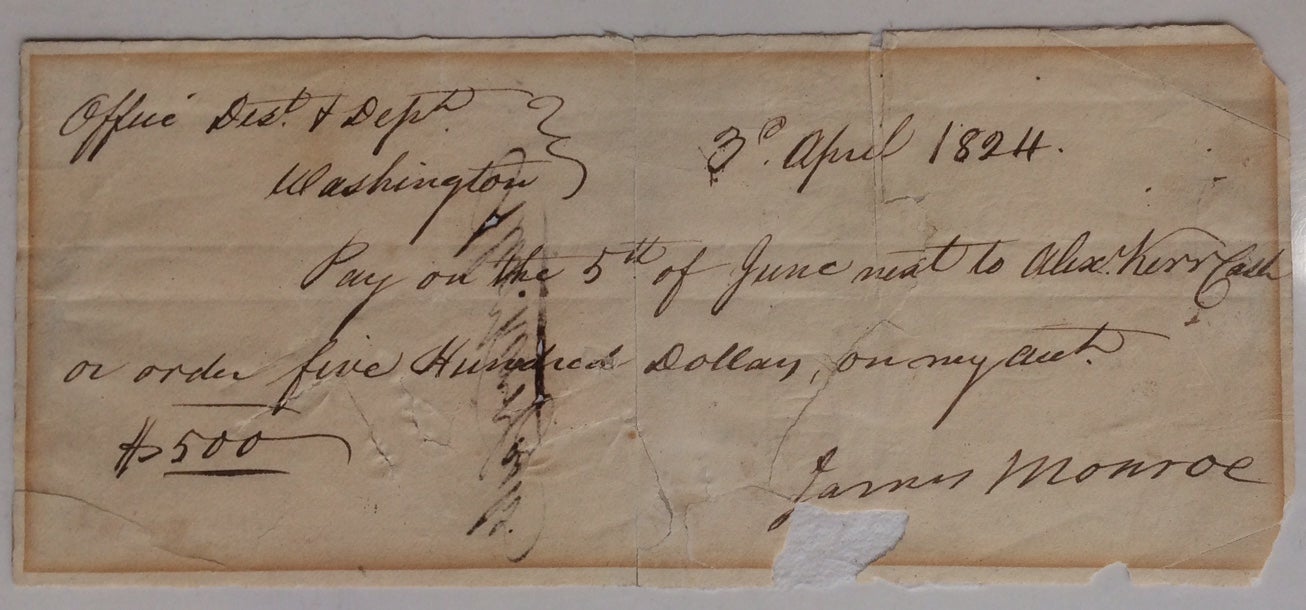 Office Dest. & Depth.
Washington
3d. April 1824.
Pay on the 5th of June next to Alexr. Kerr Cash
or order five Hundred Dollars, on my acct.
$500
James Monroe